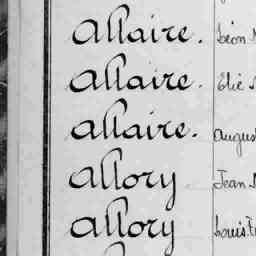 Allaire. Léon
Allaire. Elie
Allaire. August
Allory Jean
Allory Louis